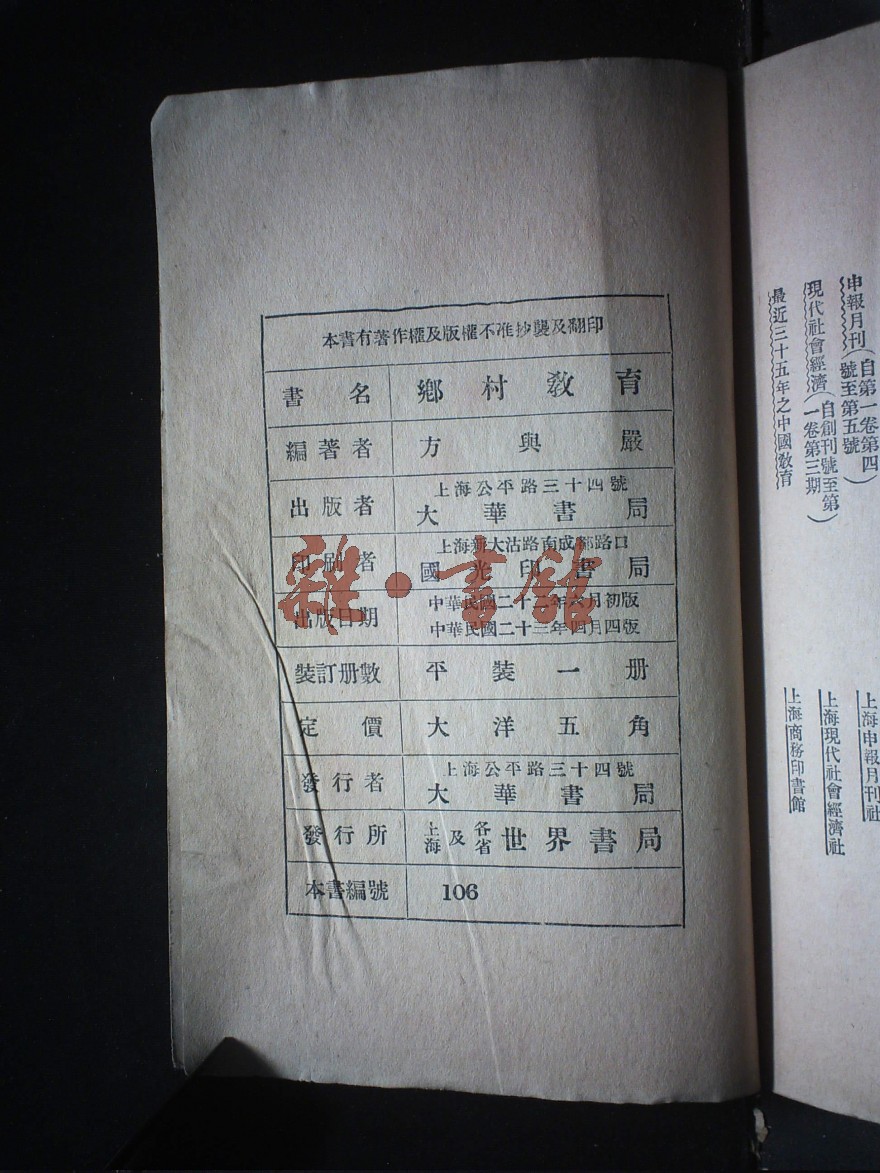 本書有著作權及版權不准抄襲及翻印
書名 鄉村教育
編著者 方與嚴
出版者 上海公平路三十四號
大華書局
印刷者 上海新大沽路南成都路口
國光印書局
出版日期 中華民國二十二年六月初版
中華民國二十三年四月四版
裝訂册數 平裝一册
定價 大洋五角
發行者 上海公平路三十四號
大華書局
發行所 上海及各省世界書局
本書編號 106
雜·書館
申報月刊(自第一卷第四號至第五號) 上海申報月刊社
現代社會經濟(自創刊號至第一卷第三期) 上海現代社會經濟社
最近三十五年之中國教育 上海商務印書館